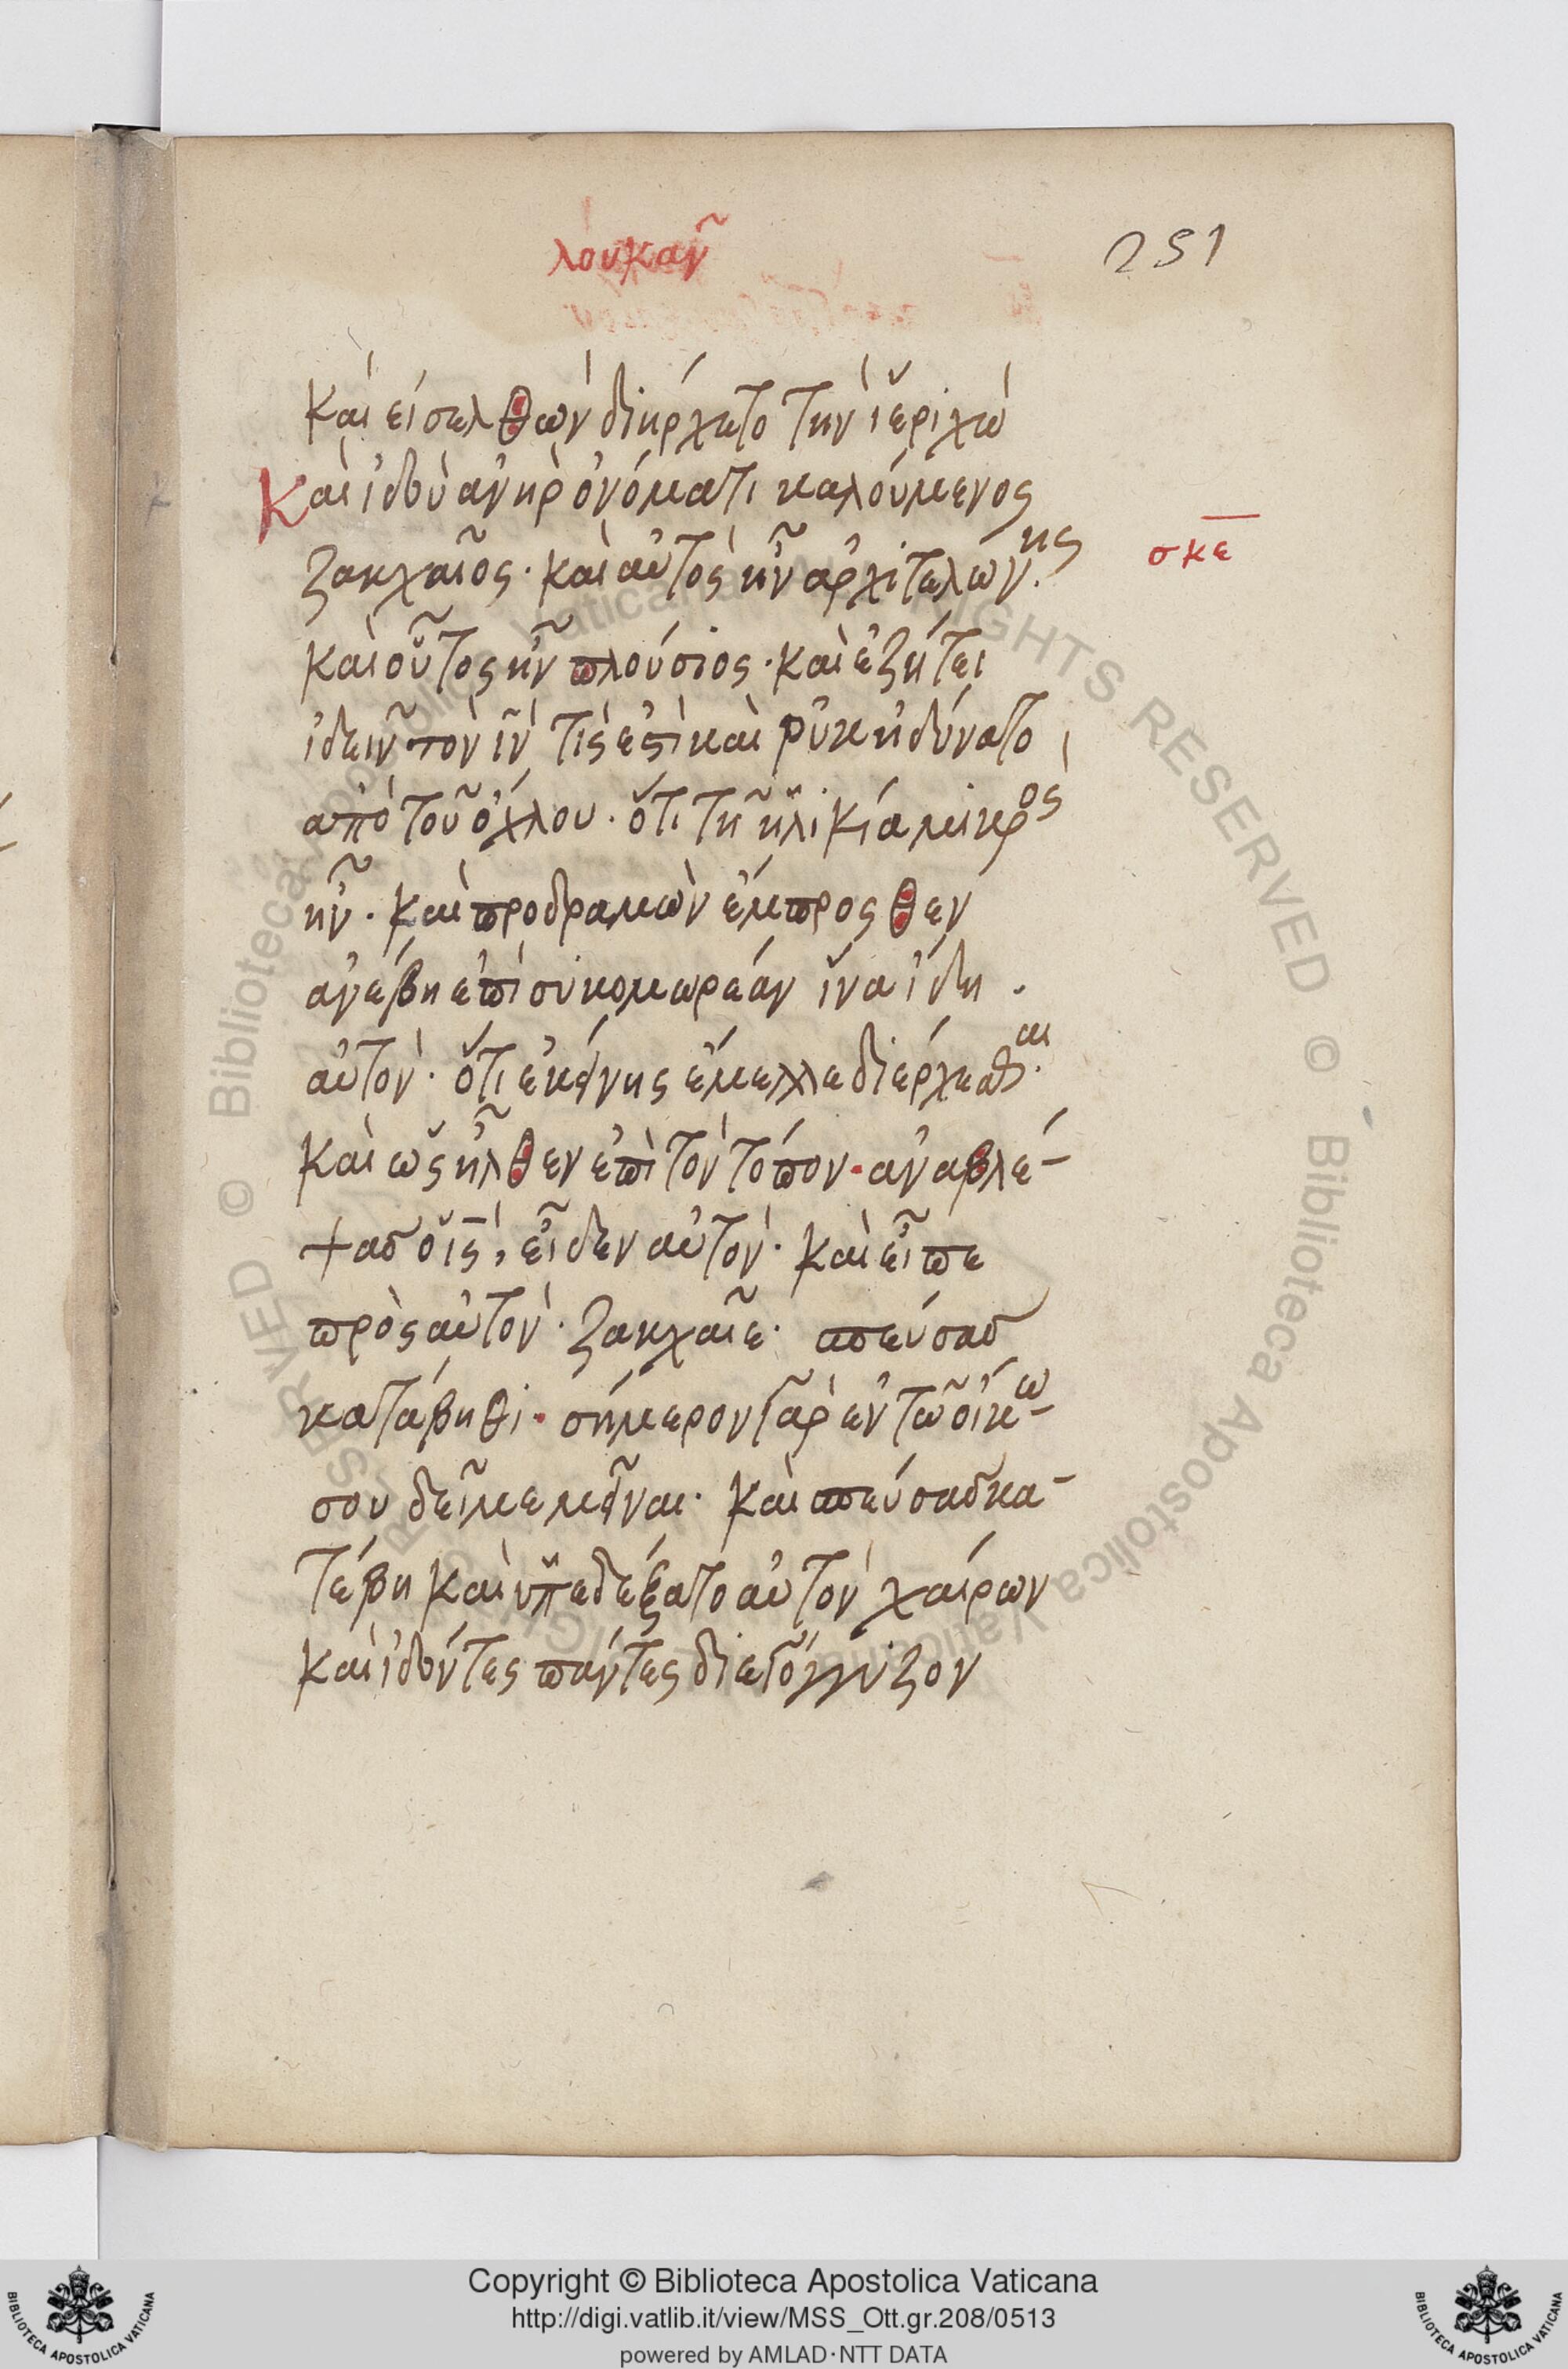 λουκᾶν
251
Καὶ εἰσελθὼν διήρχετο τὴν ἱεριχώ
Καὶ ἰδοὺ ἀνὴρ ὀνόματι καλούμενος
σκε
ζακχαῖος· καὶ αὐτὸς ἦν ἀρχιτελώνης·
καὶ οὗτος ἦν πλούσιος· καὶ ἐζήτει
ἰδεῖν τὸν ιν τίς ἐστὶ καὶ οὐκ ἠδύνατο
ἀπὸ τοῦ ὄχλου· ὅτι τῆ ἡλικία μικρὸς
ἦν· καὶ προδραμὼν ἔμπροσθεν
ἀνέβη ἐπὶ συκομωρέαν ἵνα ἴδη·
αὐτόν· ὅτι ἐκείνης ἔμελλε διέρχεσθαι·
καὶ ὡς ἦλθεν ἐπὶ τὸν τόπον· ἀναβλέ-
ψας ὁ ις, εἶδεν αὐτόν· καὶ εἶπε
πρὸς αὐτόν· ζακχαῖε· σπεύσας
κατάβηθι· σήμερον γὰρ ἐν τῶ οἴκω-
σου δεῖ με μεῖναι· καὶ σπεύσας κα-
τέβη καὶ ὑπεδέξατο αὐτὸν χαίρων
καὶ ἰδόντες πάντες διεγόγγυζον
Copyright © Biblioteca Apostolica Vaticana
http://digi.vatlib.it/view/MSS_Ott.gr.208/0513
powered by AMLAD·NTT DATA